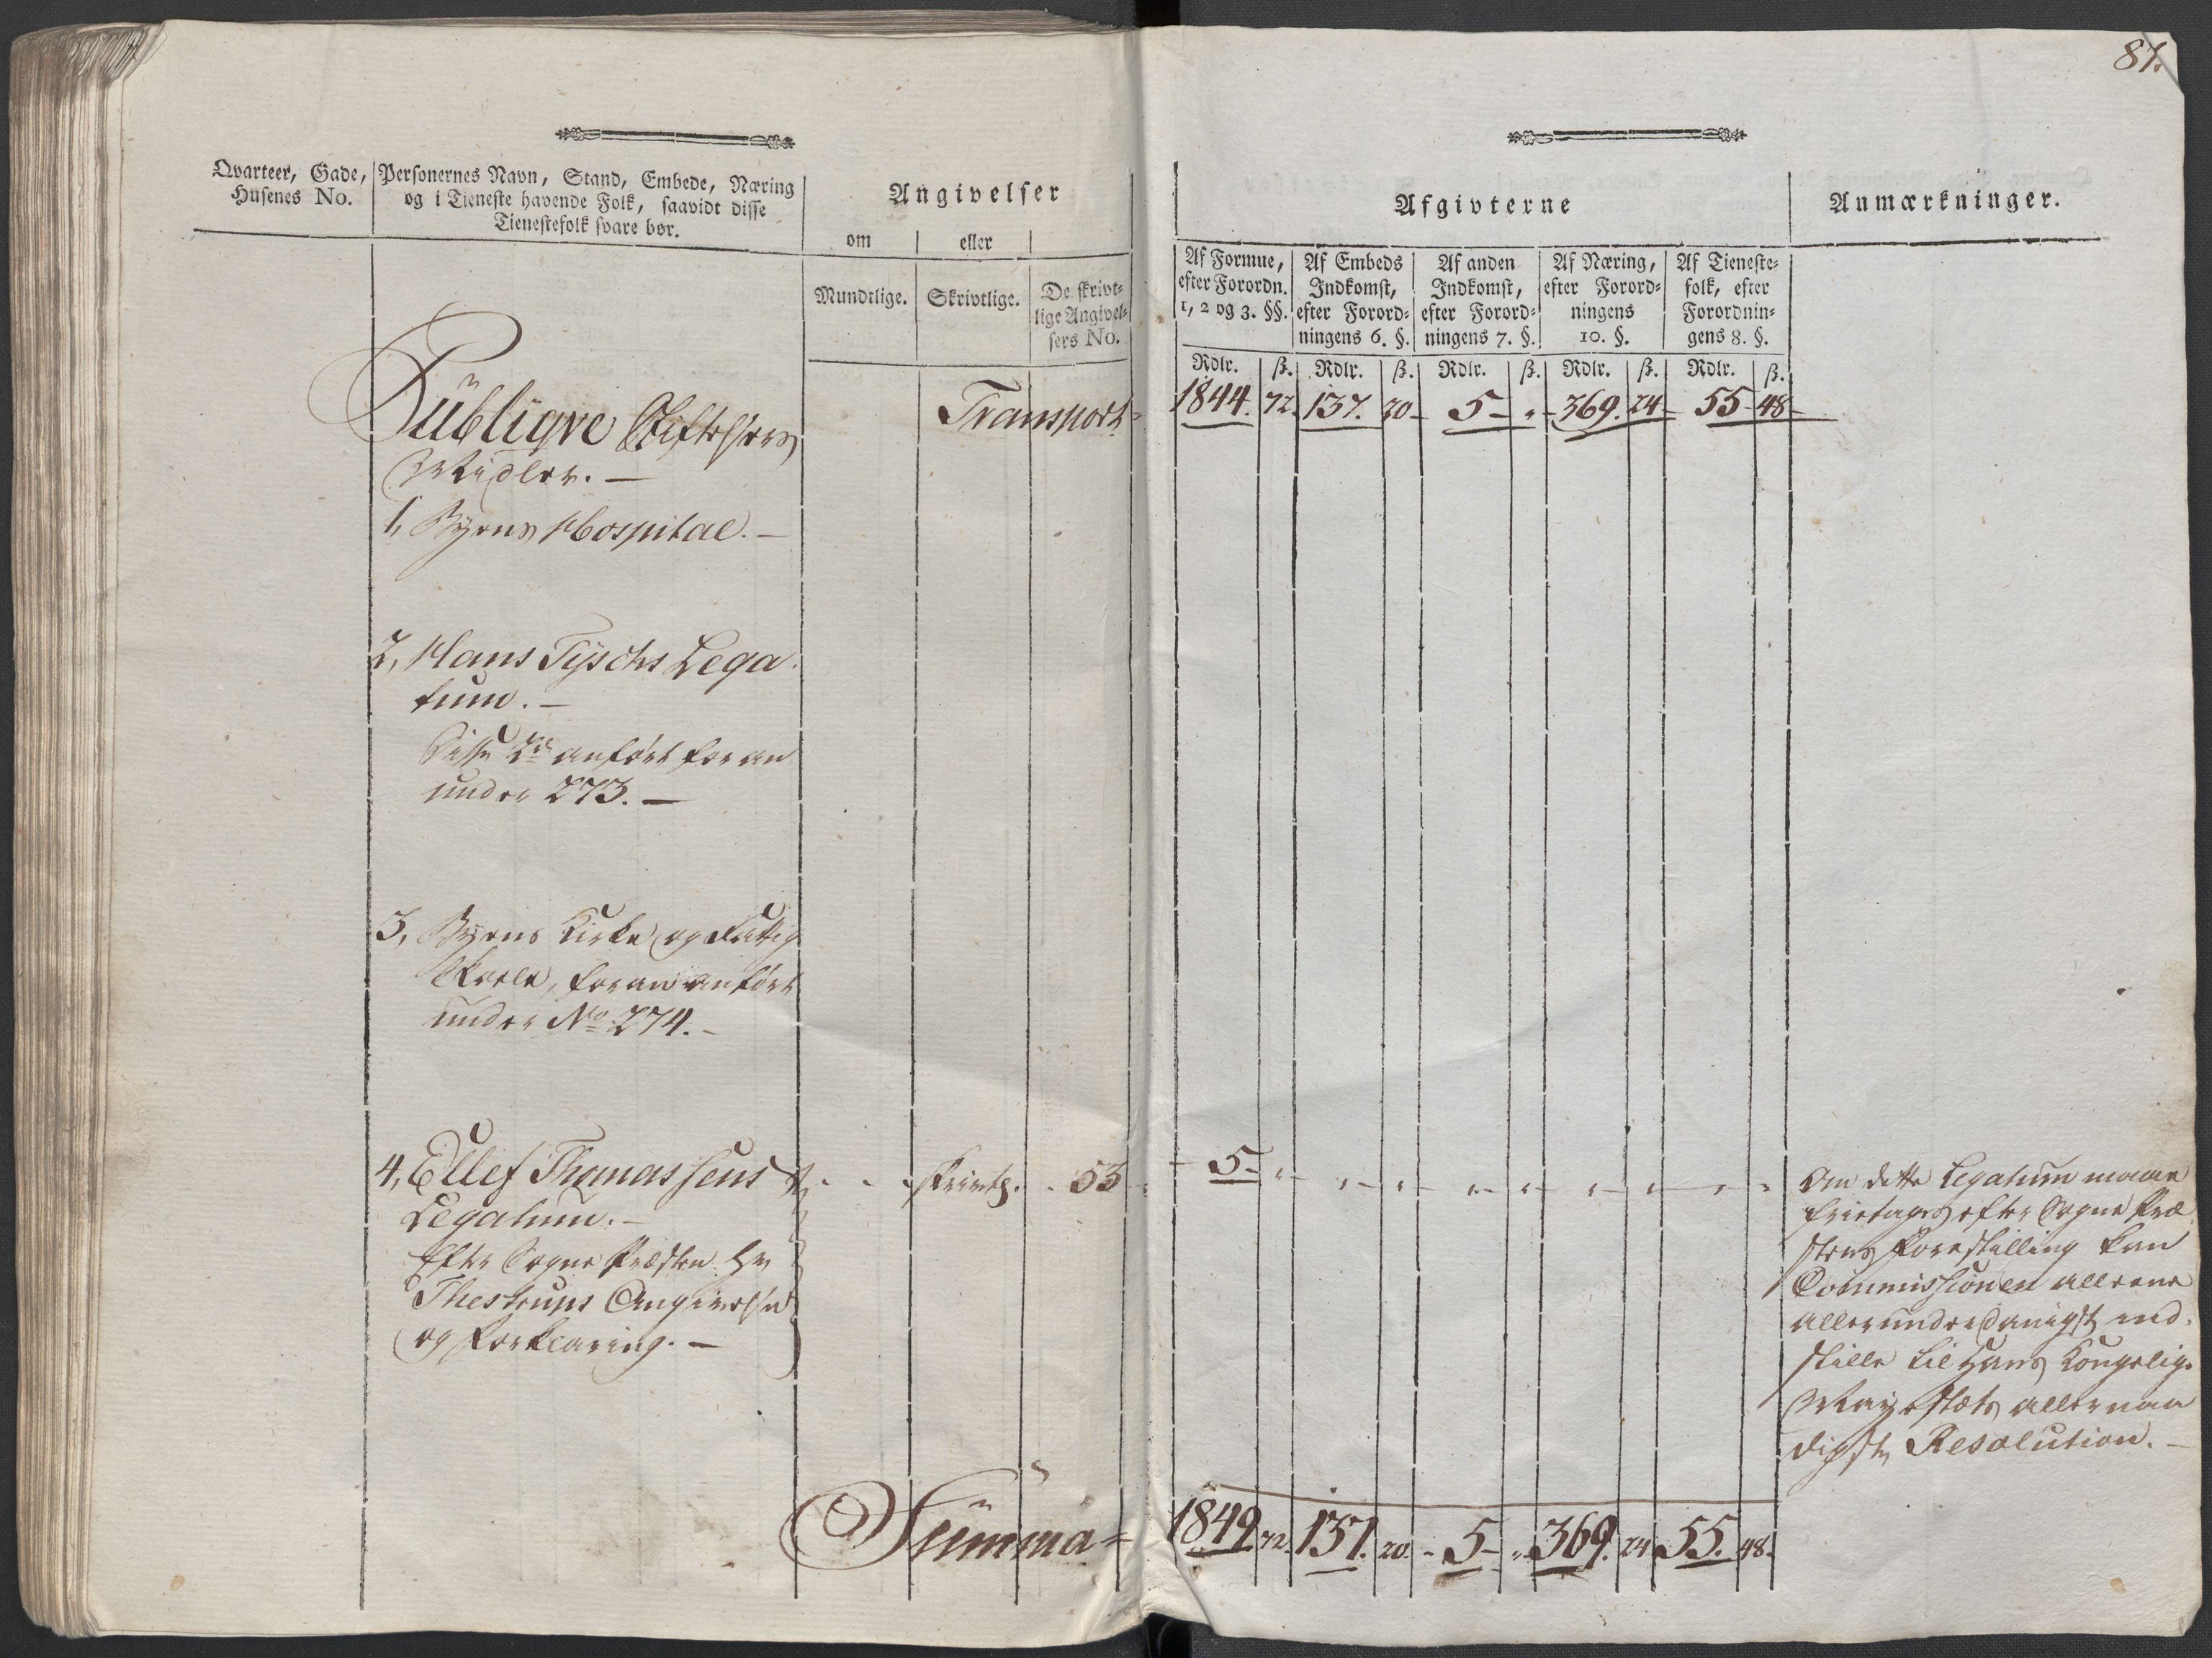 87.
Qvarteer, Gade,
Husenes No.
Personernes Navn, Stand, Embede, Næring
og i Tieneste havende Folk, saavidt disse
Tienestefolk svare bør.
Angivelser
om eller
Mundtlige. Skrivtlige. De skrivt-
lige Angivel-
sers No.
Afgivterne
Anmærkninger.
Af Formue,
efter Forordn.
1, 2 og 3. §§.
Af Embeds
Indkomst,
efter Forord-
ningens 6. §.
Af anden
Indkomst,
efter Forord-
ningens 7. §.
Af Næring,
efter Forord-
ningens
10. §.
Af Tieneste-
folk, efter
Forordnin-
gens 8. §.
Rdlr. ß. Rdlr. ß. Rdlr. ß. Rdlr. ß. Rdlr. ß.
Transport 1844. 72. 137. 20 5 " 369. 24 55 48
Publiqve Stiftelsers
Midler. —
1, Byens Hospital. —
2, Hans Tyschs Lega
tum. —
Disse 2de anført foran
under 273. —
3, Byens Kirke og Fattig
Skole, foran anført
under No 274. —
4, Ellef Thomassens
Legatum. —
Efter Sogne Præsten Hr
Thestrups Angivelse
og Forklaring. —
skrivtl. 53 5
Om dette Legatum maae
fritages efter Sogne Præ
stens Forestilling kan
Commissionen alleene
allerunderdanigst ind-
stille til Hans Kongelige
Mayestæts allernaa
digste Resolution. —
Summa 1849. 72. 137. 20. 5 " 369. 24 55. 48.